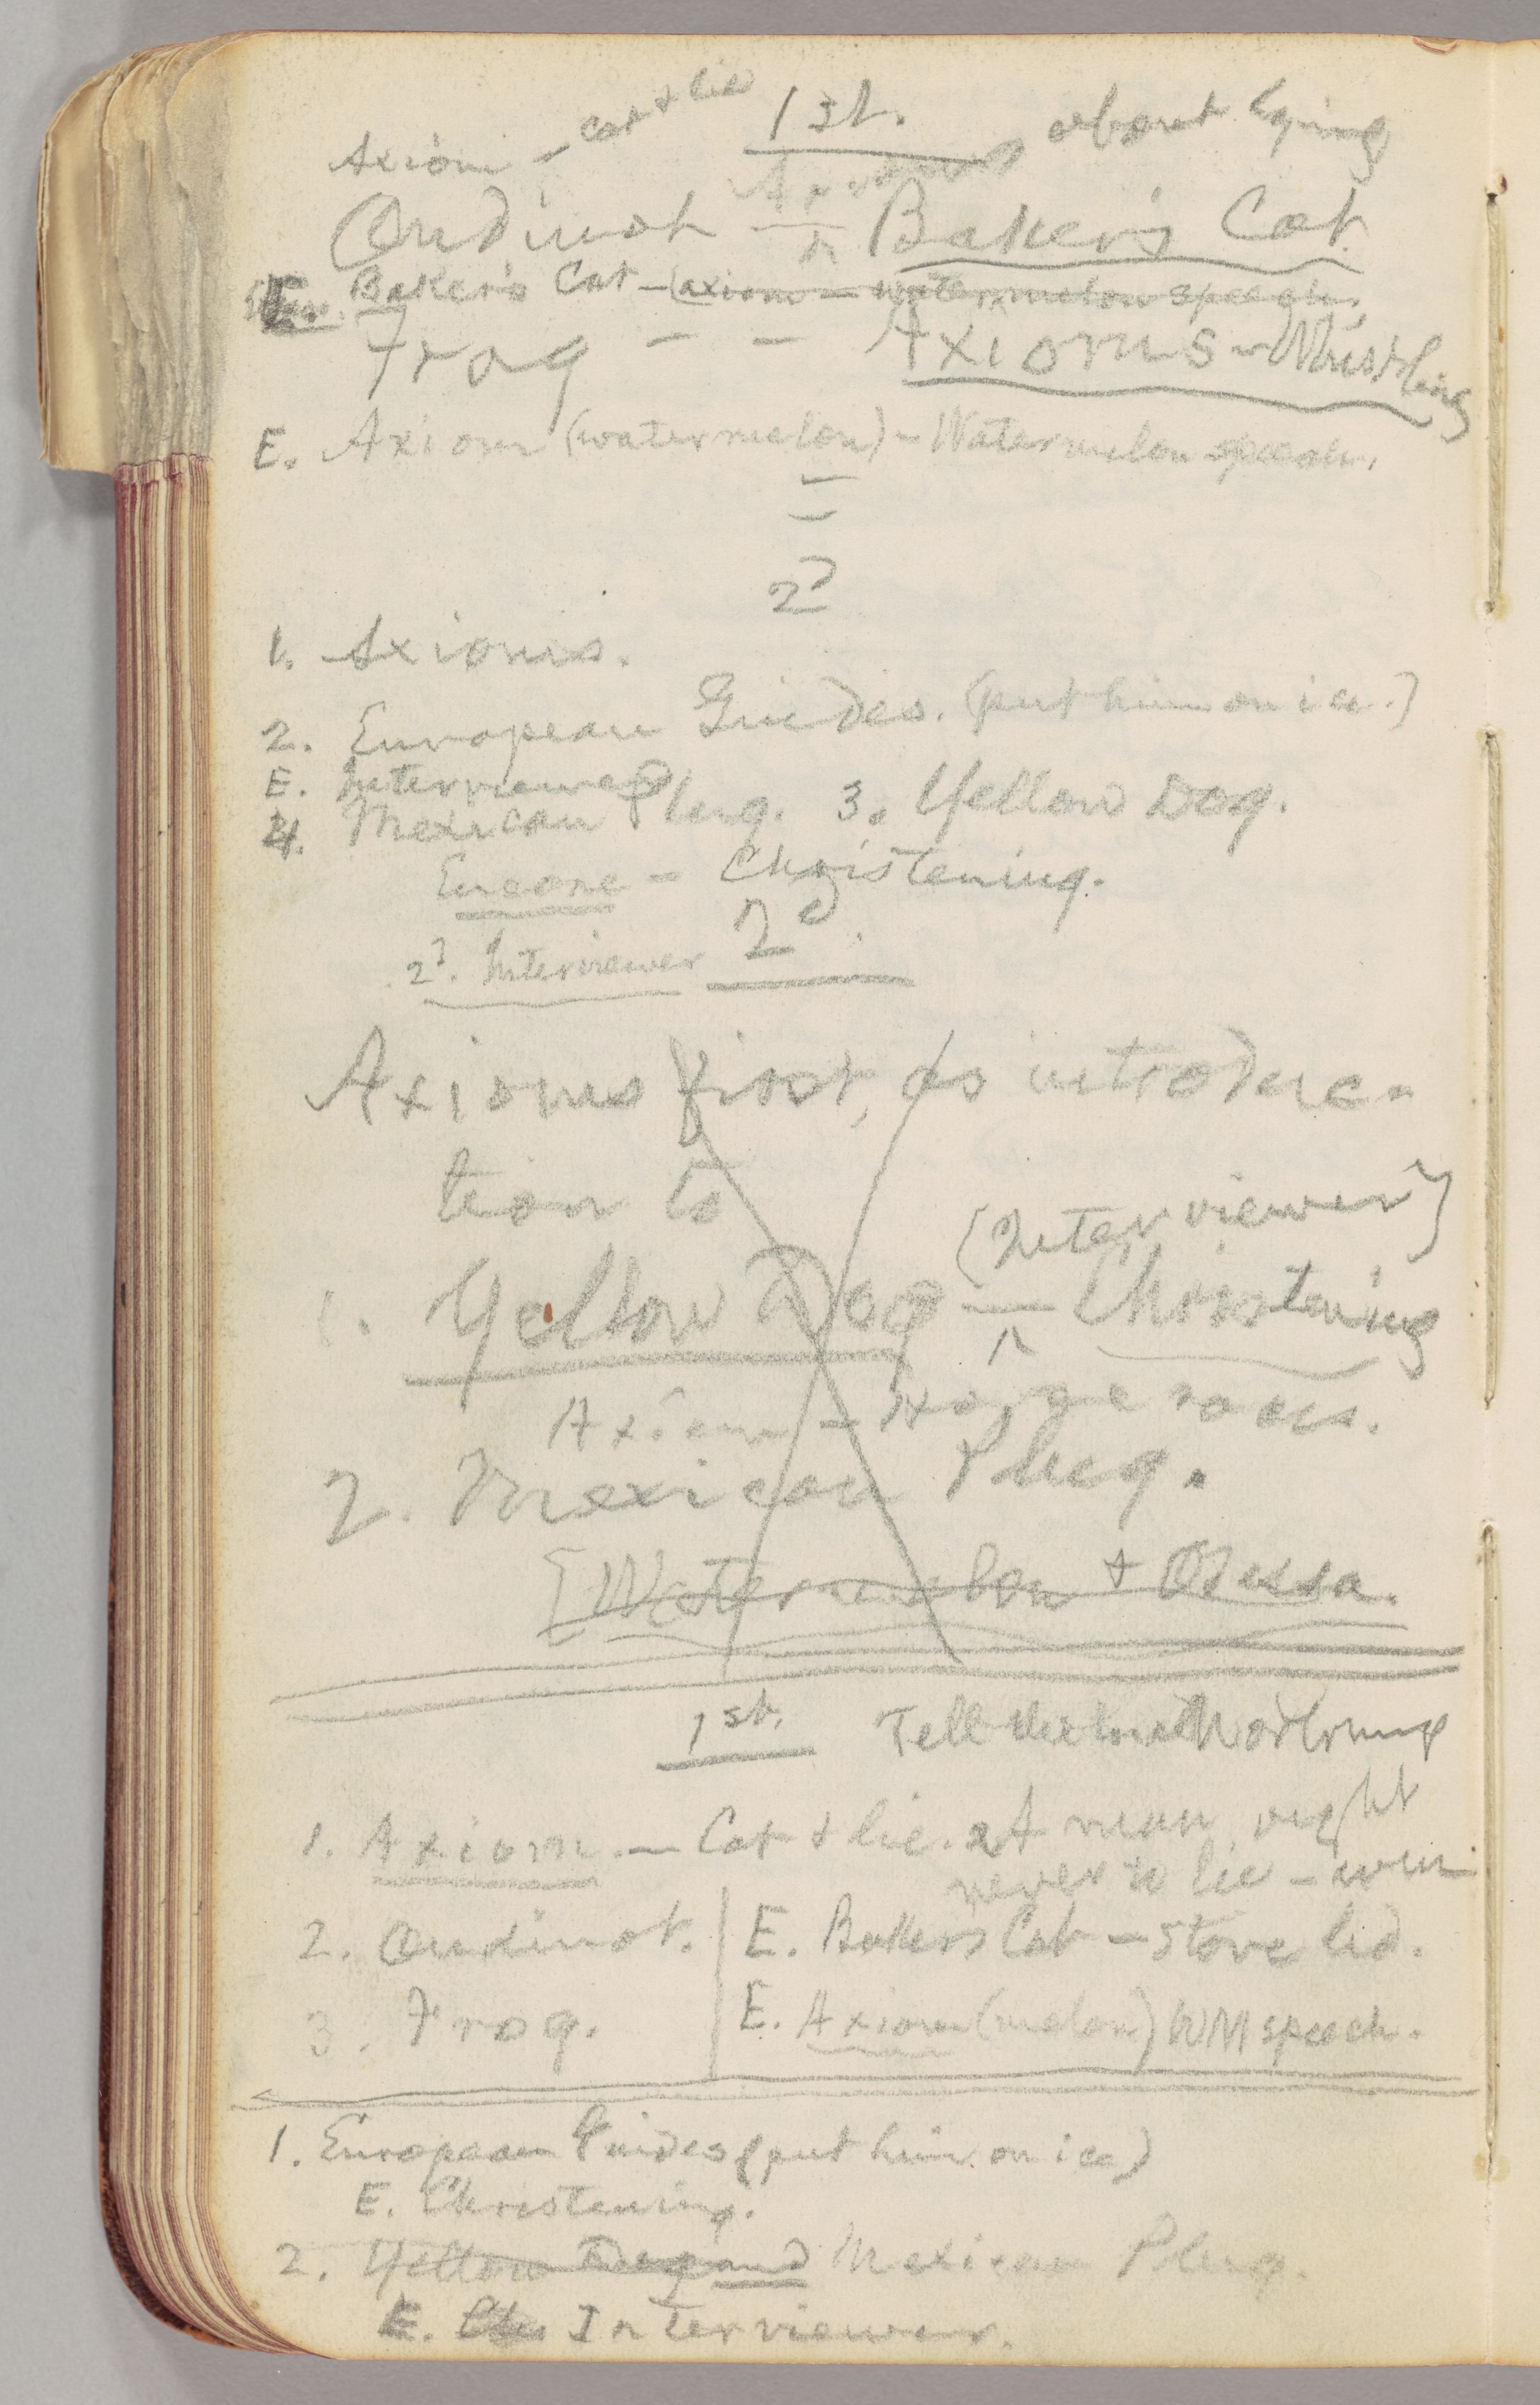 1st.
Axiom – cat & lie about lying
Oudinot — Baker's Cat
E. Baker's Cat – (axiom – watermelon speech.
Frog – – Axioms – Whistling
E. Axiom (watermelon) – Watermelon speech.
2d
1. Axioms.
2. European Guides. (put him on ice.)
E. Interviewer
4. Mexican Plug. 3. Yellow Dog.
Encore – Christening.
2d. Interviewer 2d.
Axioms first, as introduc-
tion to
(Interviewer)
1. Yellow Dog — Christening
Axiom –
2. Mexican Plug.
[Watermelon & Odessa.
1st. Tell
1. Axiom. – Cat & lie. 2 A man ought
never to lie –
2. Oudinot. E. Bakers Cat – Stove lid.
3. Frog. E. Axiom (melon) WM speech.
1. European Guides (put him on ice)
E. Christening.
2. Yellow Dog and Mexican Plug.
E. Chr Interviewer.